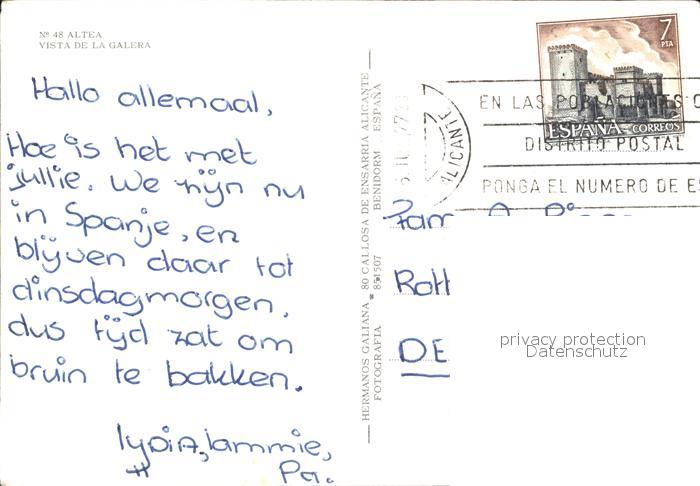 Nº 48 ALTEA
VISTA DE LA GALERA
Hallo allemaal,
Hoe is het met
jullie. We zijn nu
in Spanje, en
blijven daar tot
dinsdagmorgen,
dus tijd zat om
bruin te bakken.
lydia, jammie,
Pa.
HERMANOS GALIANA * 80 CALLOSA DE ENSARRIA ALICANTE
FOTOGRAFIA 851507 BENIDORM ESPAÑA
7
PTA
ESPAÑA CORREOS
ALICANTE
EN LAS POBLACIONES C
DISTRITO POSTAL
PONGA EL NUMERO DE ES
Fam
Rott
DE
privacy protection
Datenschutz